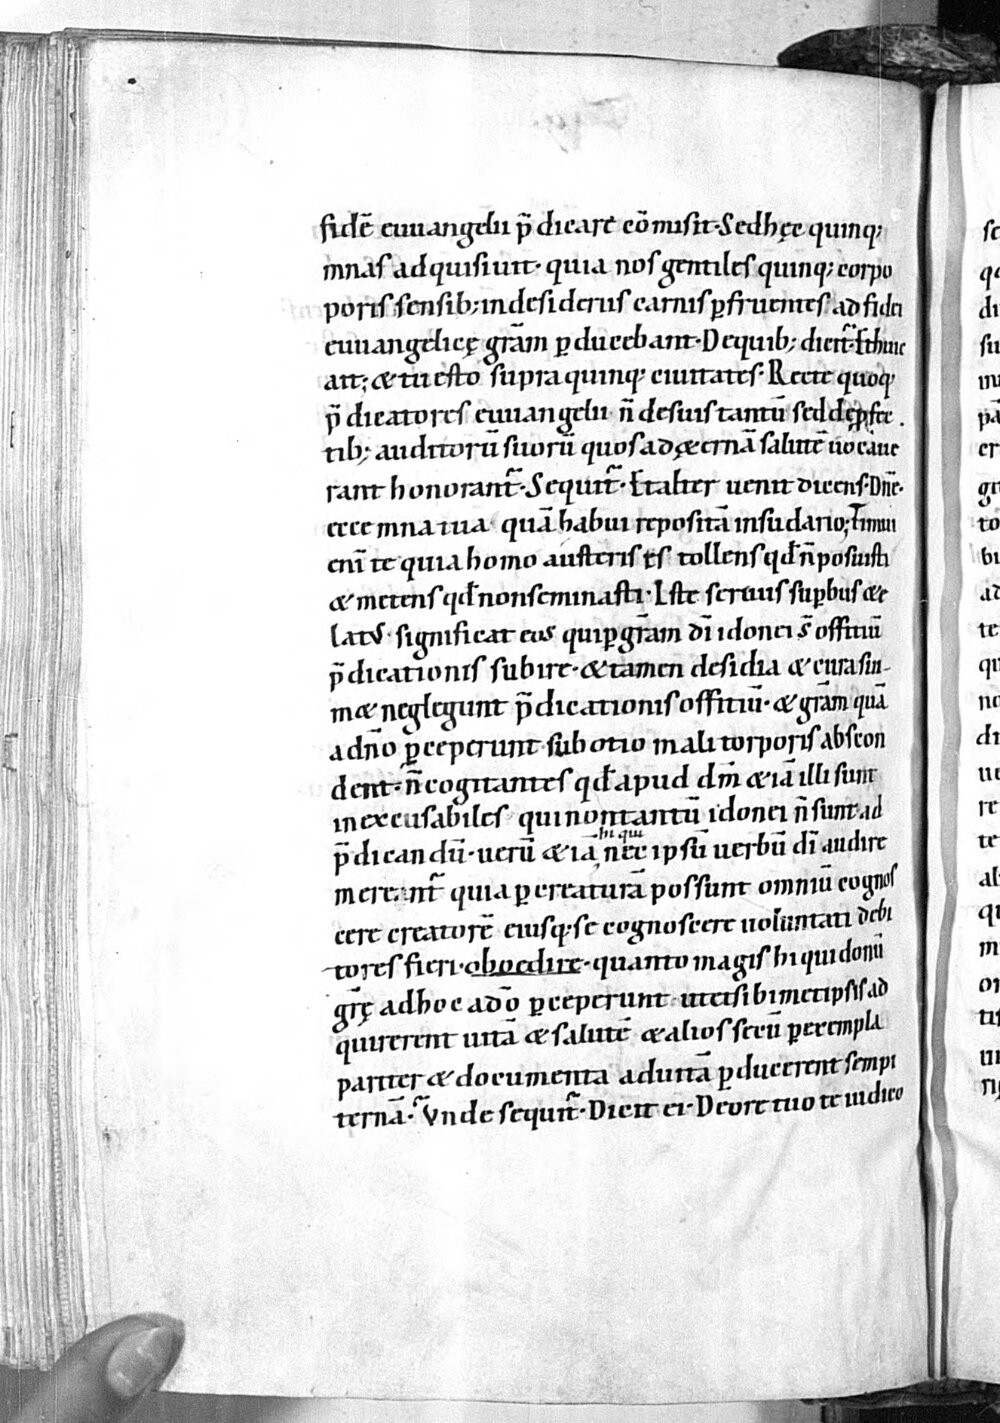 fidē euuangelii p̄dicare cōmisit. Sed hęc quinq;
mnas adquisiuit. quia nos gentiles quinq; corpo
poris sensib; in desideriis carnis ꝑfruentes ad fidei
euuangelicę gr̄am ꝑducebant. De quib; dicit̄. Et huic
ait; & tu esto supra quinq; ciuitates. Recte quoq;
p̄dicatores euuangelii n̄ de suis tantū sed de ꝑfec
tib; auditorū suorū quos ad ęternā salutē uocaue
rant honorant̄. Sequit̄. Et alter uenit dicens. Dn̄e.
ecce mna tua quā habui repositā in sudario; timui
eni te quia homo austeris es tollens qd̄ n̄ posuisti
& metens qd̄ non seminasti. Iste seruus supbus & e
latus. significat eos qui ꝑ gr̄am dī idonei s̄ offitiū
p̄dicationis subire. & tamen desidia & cura sūi-
mæ neglegunt p̄dicationis offitiū. & gr̄am quā
a dn̄o ꝑceperunt sub otio mali torporis abscon
dent. n̄ cogitantes qd̄ apud dm̄ & iā illi sunt
inexcusabiles qui non tantū idonei n̄ sunt ad
p̄dicandū. uerū & iā hi qui nec ipsū uerbū dī audire
merent̄ quia ꝑ creaturā possunt omniū cognos
cere creatorē eiusq; se cognoscere uoluntati debi
tores fieri. oboedire. quanto magis hi qui donū
gr̄ę ad hoc a dō ꝑceperunt. ut et sibimet ipsis ad
quirerent uitā & salutē & alios secū ꝑ exempla
pariter & documenta ad uitā ꝑducerent sempi
ternā. Vnde sequit̄. Dicit ei. De ore tuo te iudico